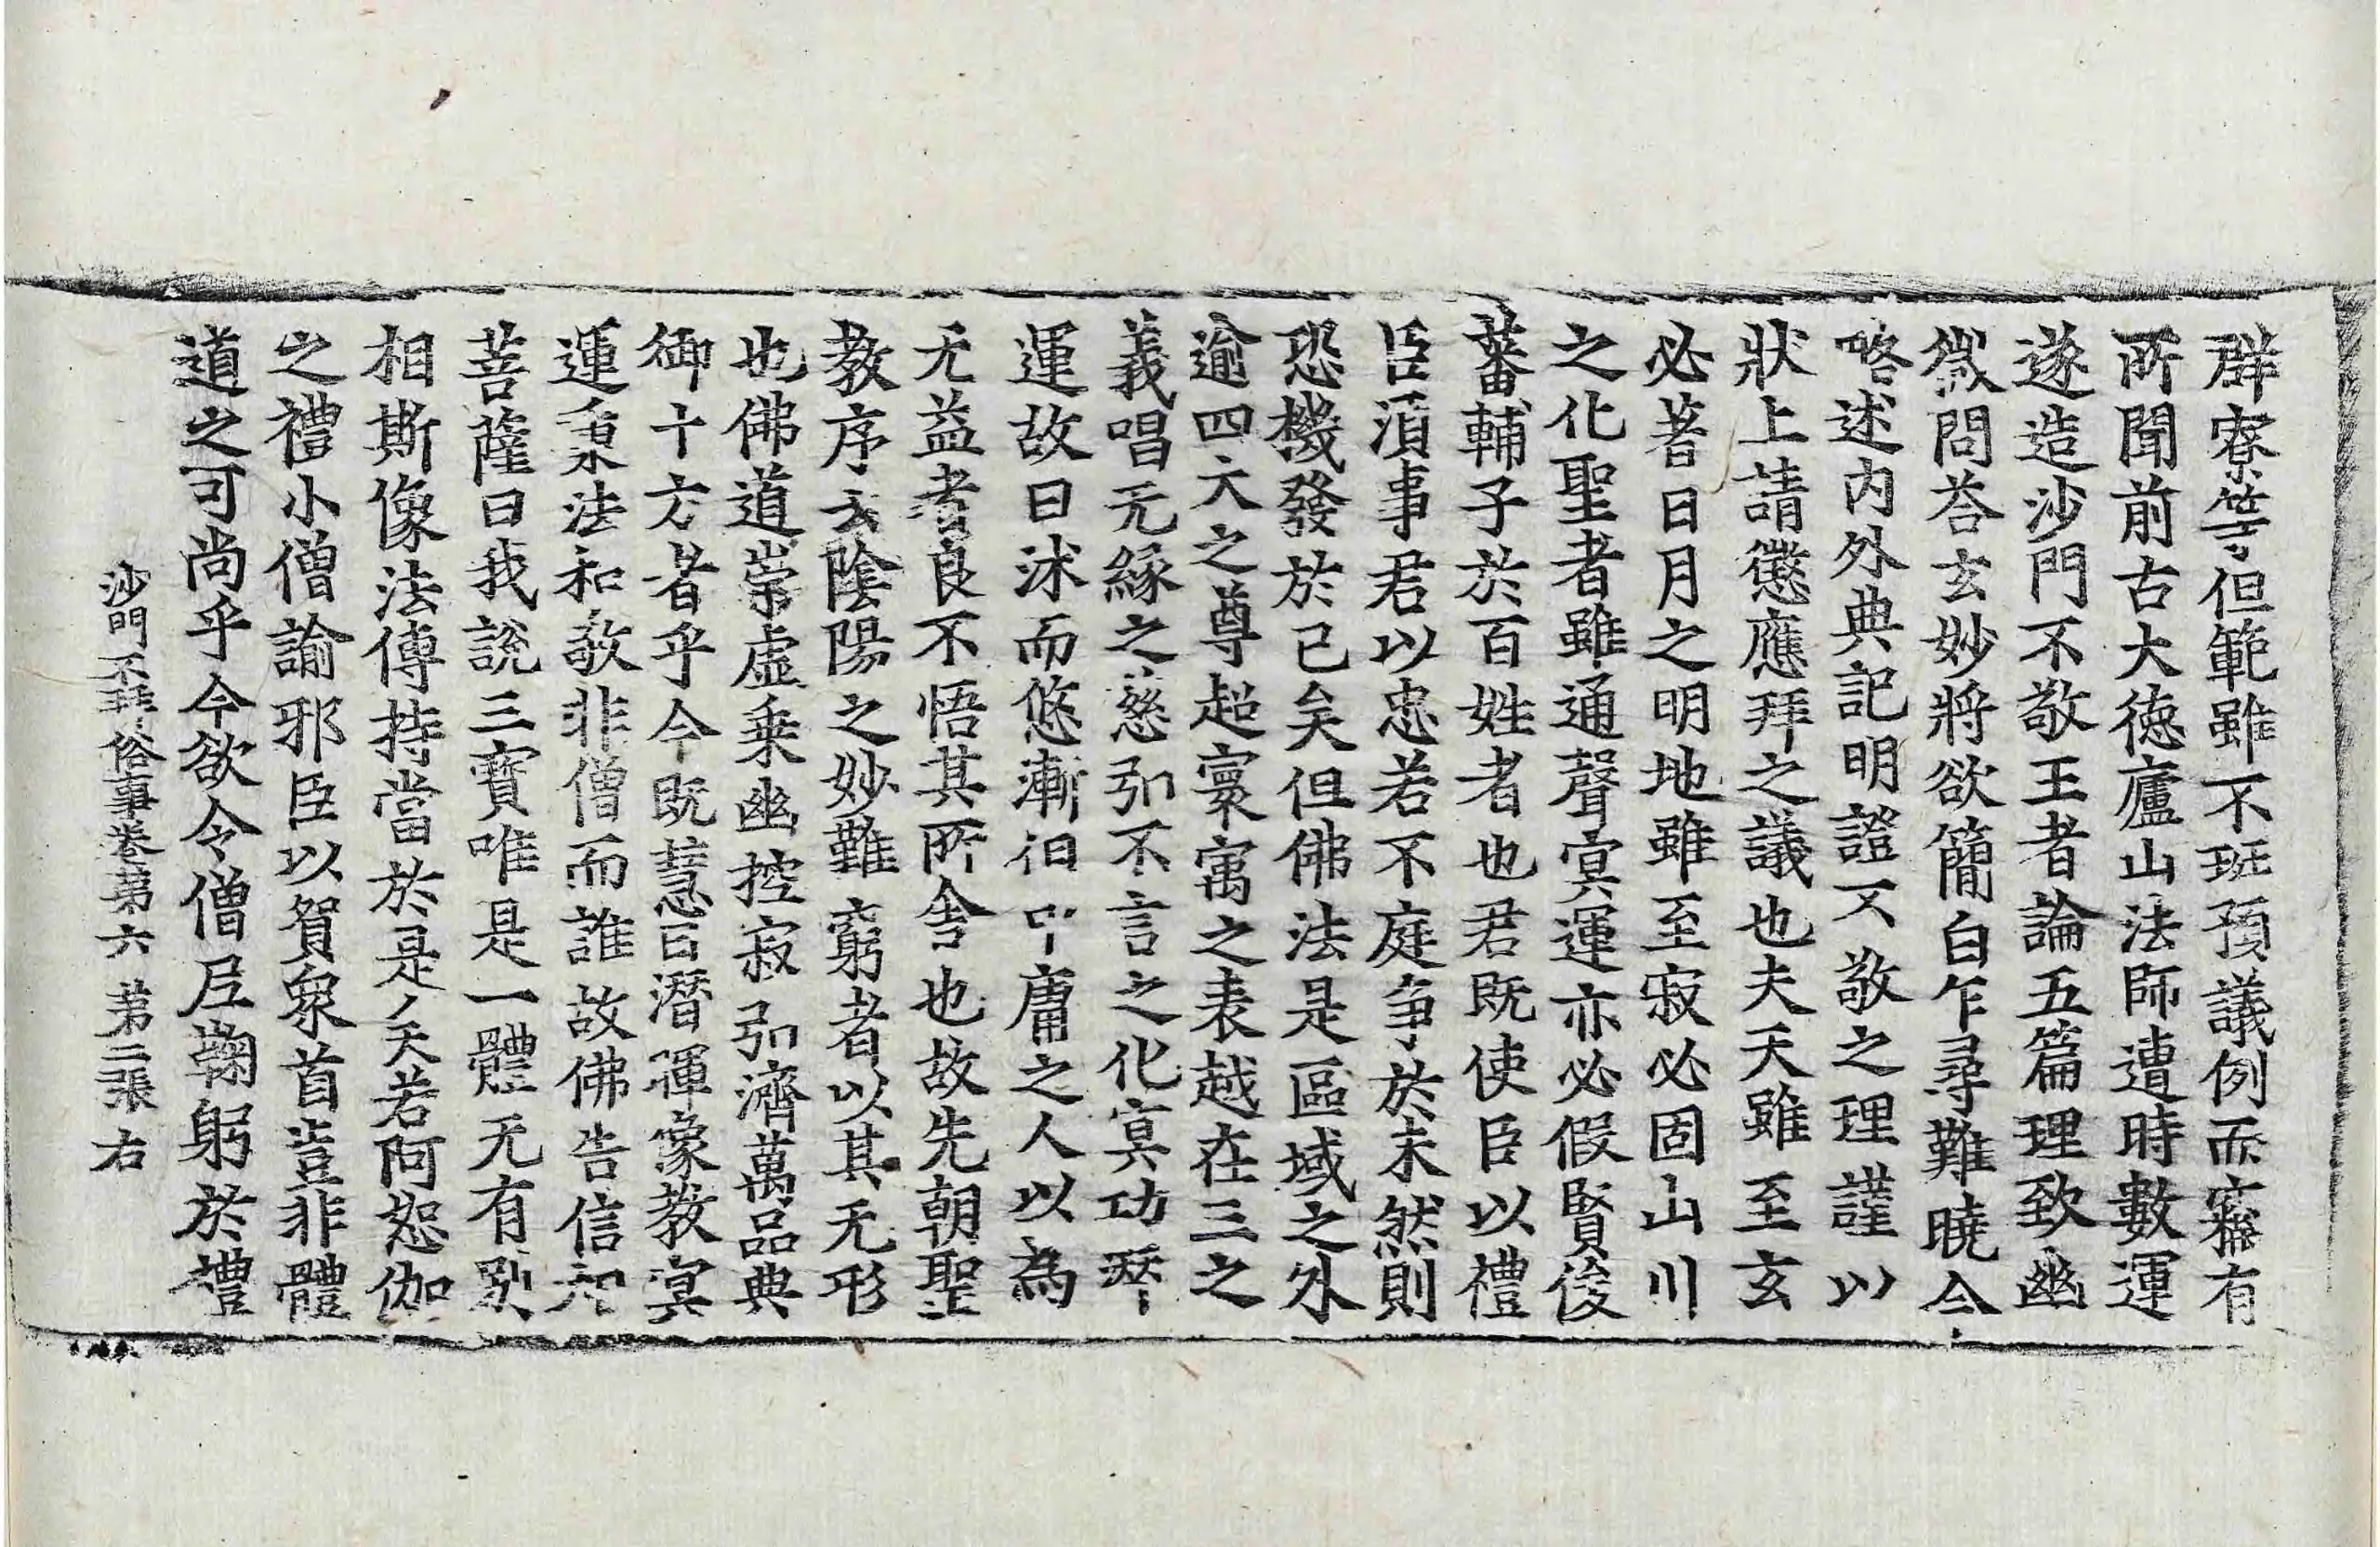 群寮等但範雖不班預議例而竊有
所聞前古大德廬山法師遭時數運
遂造沙門不敬王者論五篇理致幽
微問荅玄妙將欲簡白乍尋難曉今
略述內外典記明證又敬之理謹以
狀上請懲應拜之議也夫天雖至玄
必著日月之明地雖至寂必固山川
之化聖者雖通聲冥運亦必假賢俊
蕃輔子於百姓者也君既使臣以禮
臣湏事君以忠若不庭争於未然則
恐機發於已矣但佛法是區域之外
逾四大之尊超寰寓之表越在三之
義唱无緣之慈弘不言之化冥功
運故曰沭而悠漸汩叩庸之人以為
无益者良不悟其所舍也故先朝聖
教序云陰陽之妙難窮者以其无形
也佛道崇虛乗幽控寂弘濟萬品典
御十方者乎今既慧日潛暉像教冥
運秉法和敬非僧而誰故佛告信相
菩薩曰我說三寶唯是一體无有別
相斯像法傳持當於是人矣若阿恕伽
之禮小僧諭邪臣以貿衆首豈非體
道之可尚乎今欲令僧尼鞠躬於禮
沙門不拜俗事卷第六 第二張 右